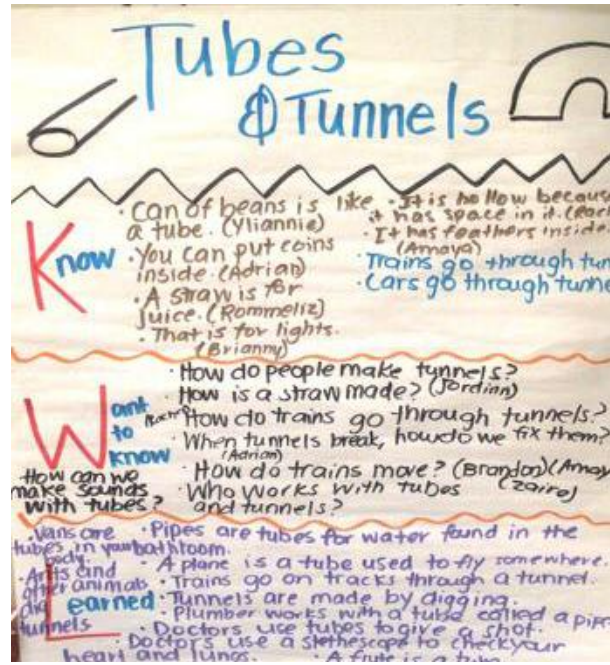 Tubes
& Tunnels
Know
· Can of beans is like
a tube. (Yliannie)
· You can put coins
inside. (Adrian)
· A straw is for
juice. (Rommeliz)
· That is for lights.
(Brianny)
· It is hollow becaus
it has space in it.
· It has feathers inside.
(Amaya)
· Trains go through tun
· Cars go through tunne
Want
to
know
· How do people make tunnels?
· How is a straw made? (Jordinn)
· How do trains go through tunnels?
· When tunnels break, how do we fix them?
(Adrian)
· How do trains move? (Brandon) (Amay
· Who works with tubes (Zaire)
and tunnels?
How can we
make sounds
with tubes?
Learned
· Vans are
tubes in your
body.
· Ants and
other animals
dig
tunnels
· Pipes are tubes for water found in the
bathroom.
· A plane is a tube used to fly somewhere.
· Trains go on tracks through a tunnel.
· Tunnels are made by digging.
· Plumber works with a tube called a pipe
· Doctors use tubes to give a shot.
· Doctors use a stethescope to check your
heart and lungs.
· A flute is a